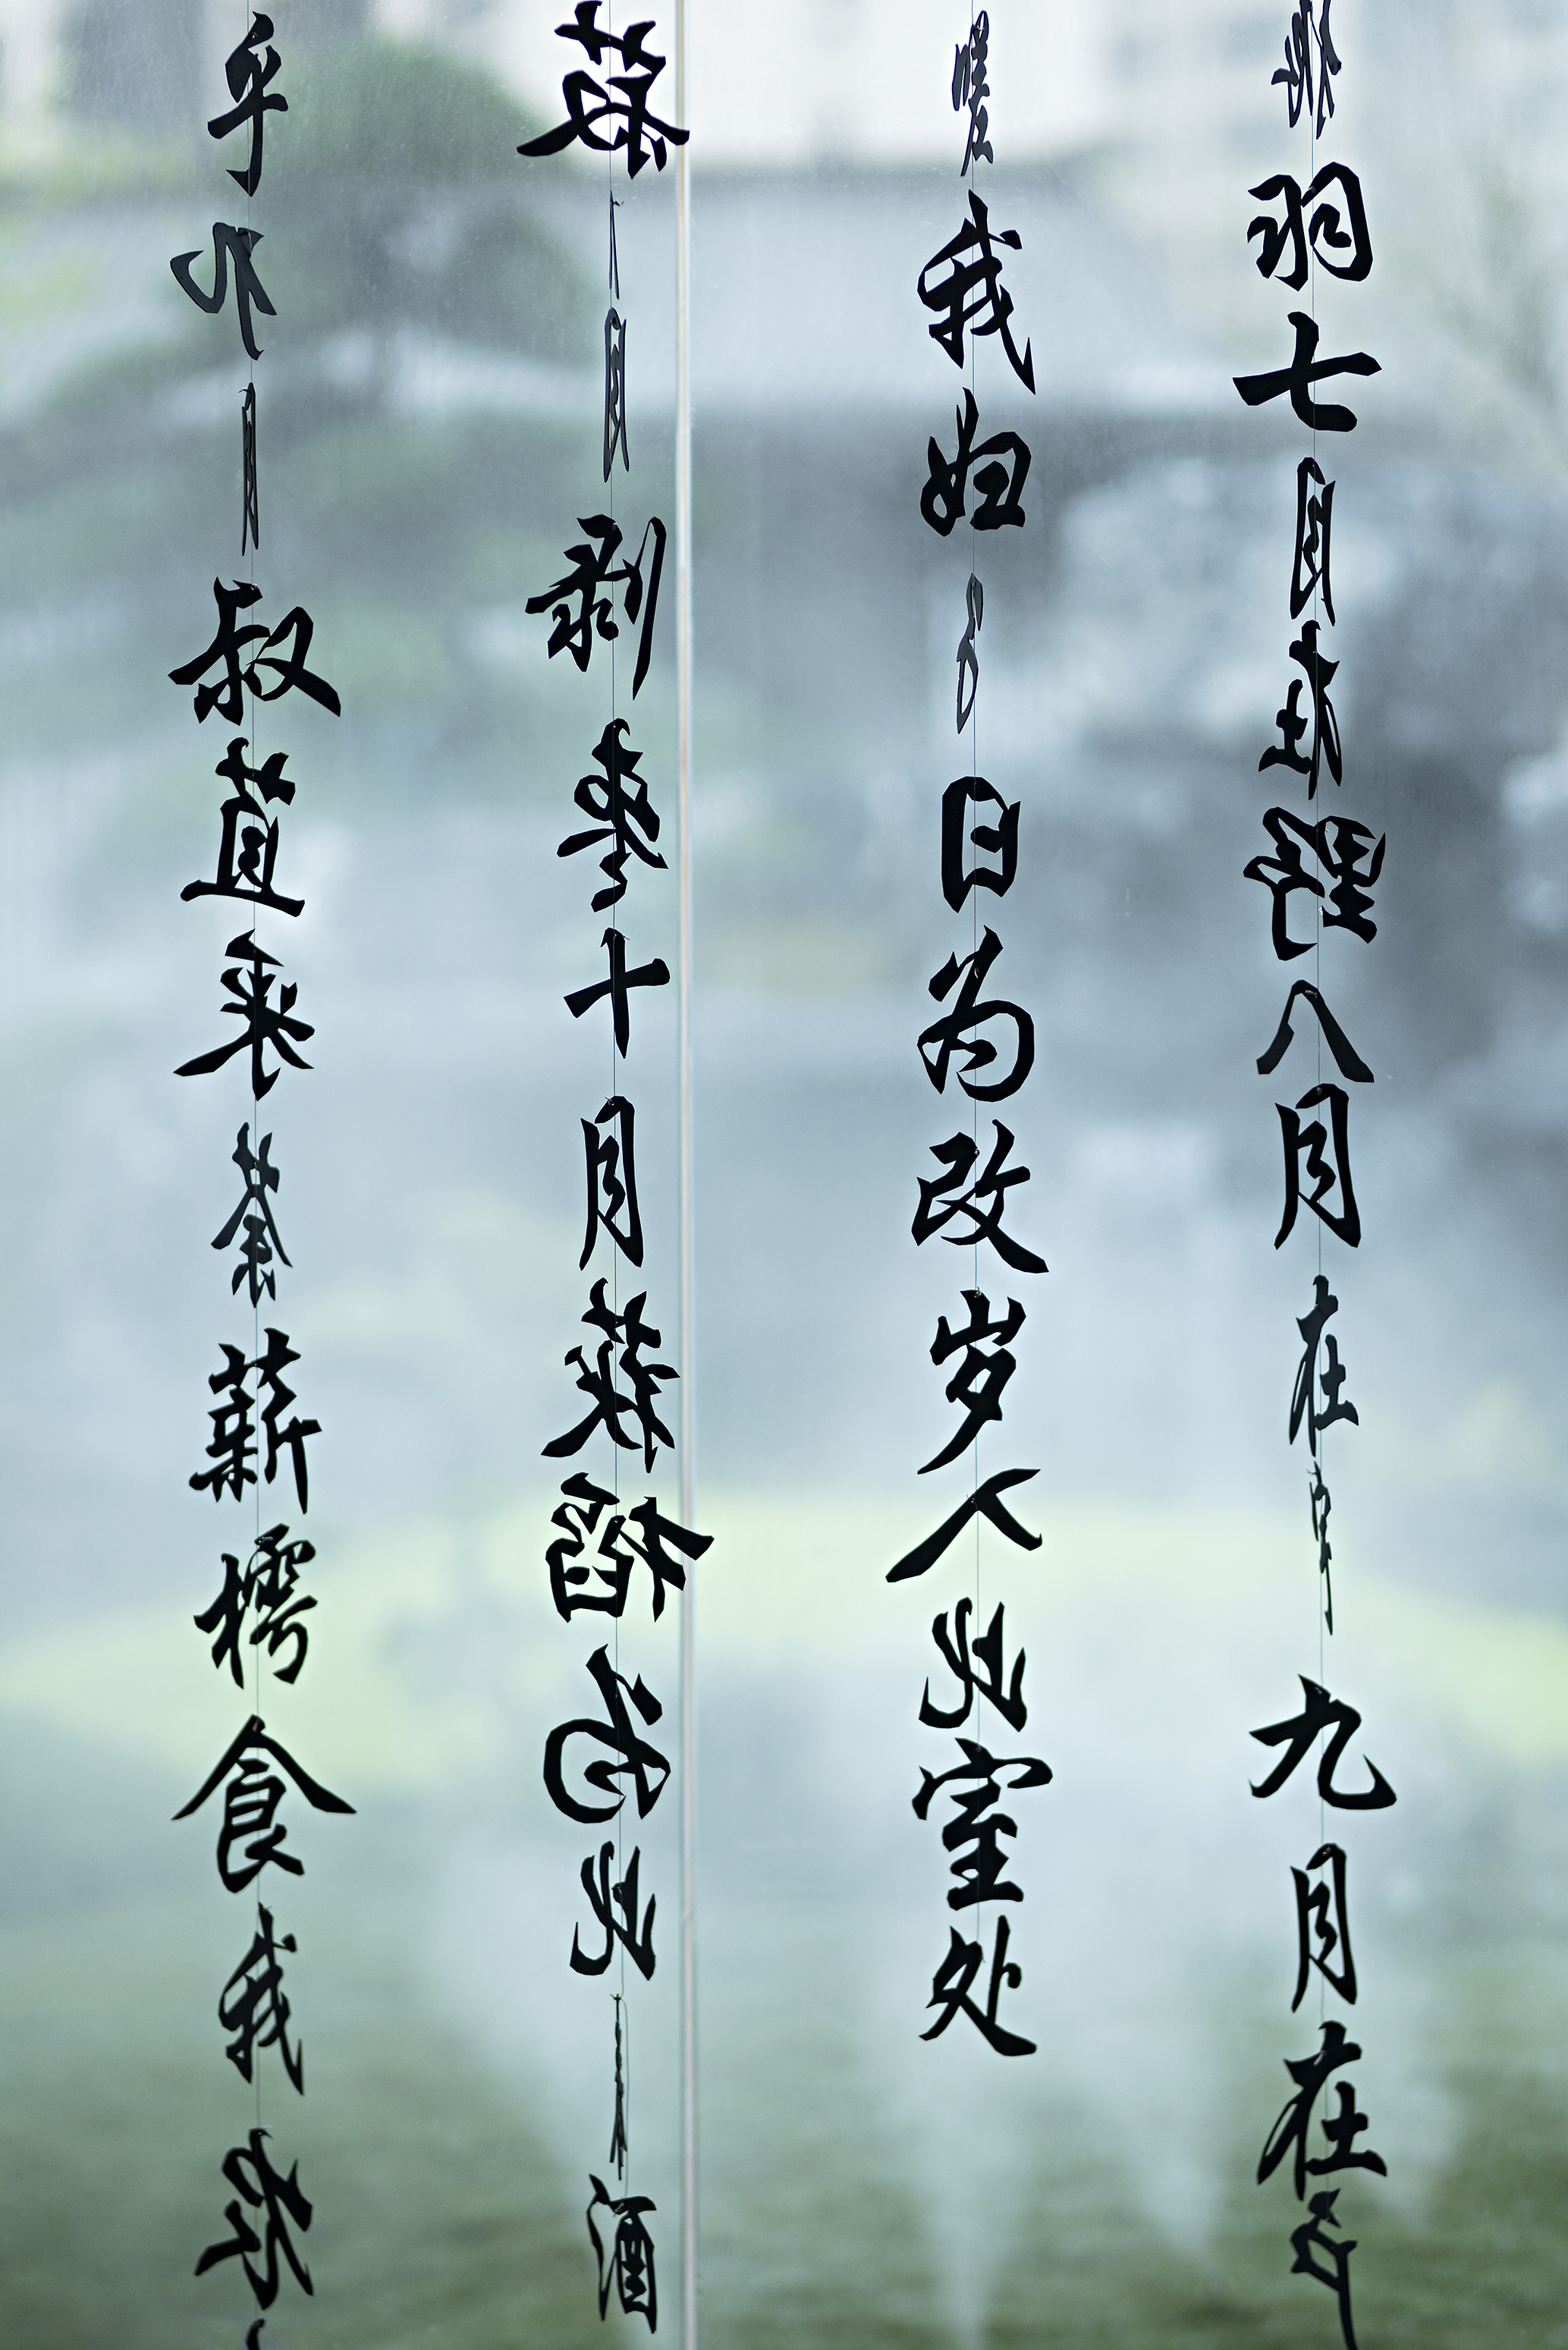 振羽七月在野八月在宇九月在户
嗟我妇子曰为改岁入此室处
菽八月剥枣十月获稻为此春酒
乎九月叔苴采荼薪樗食我农